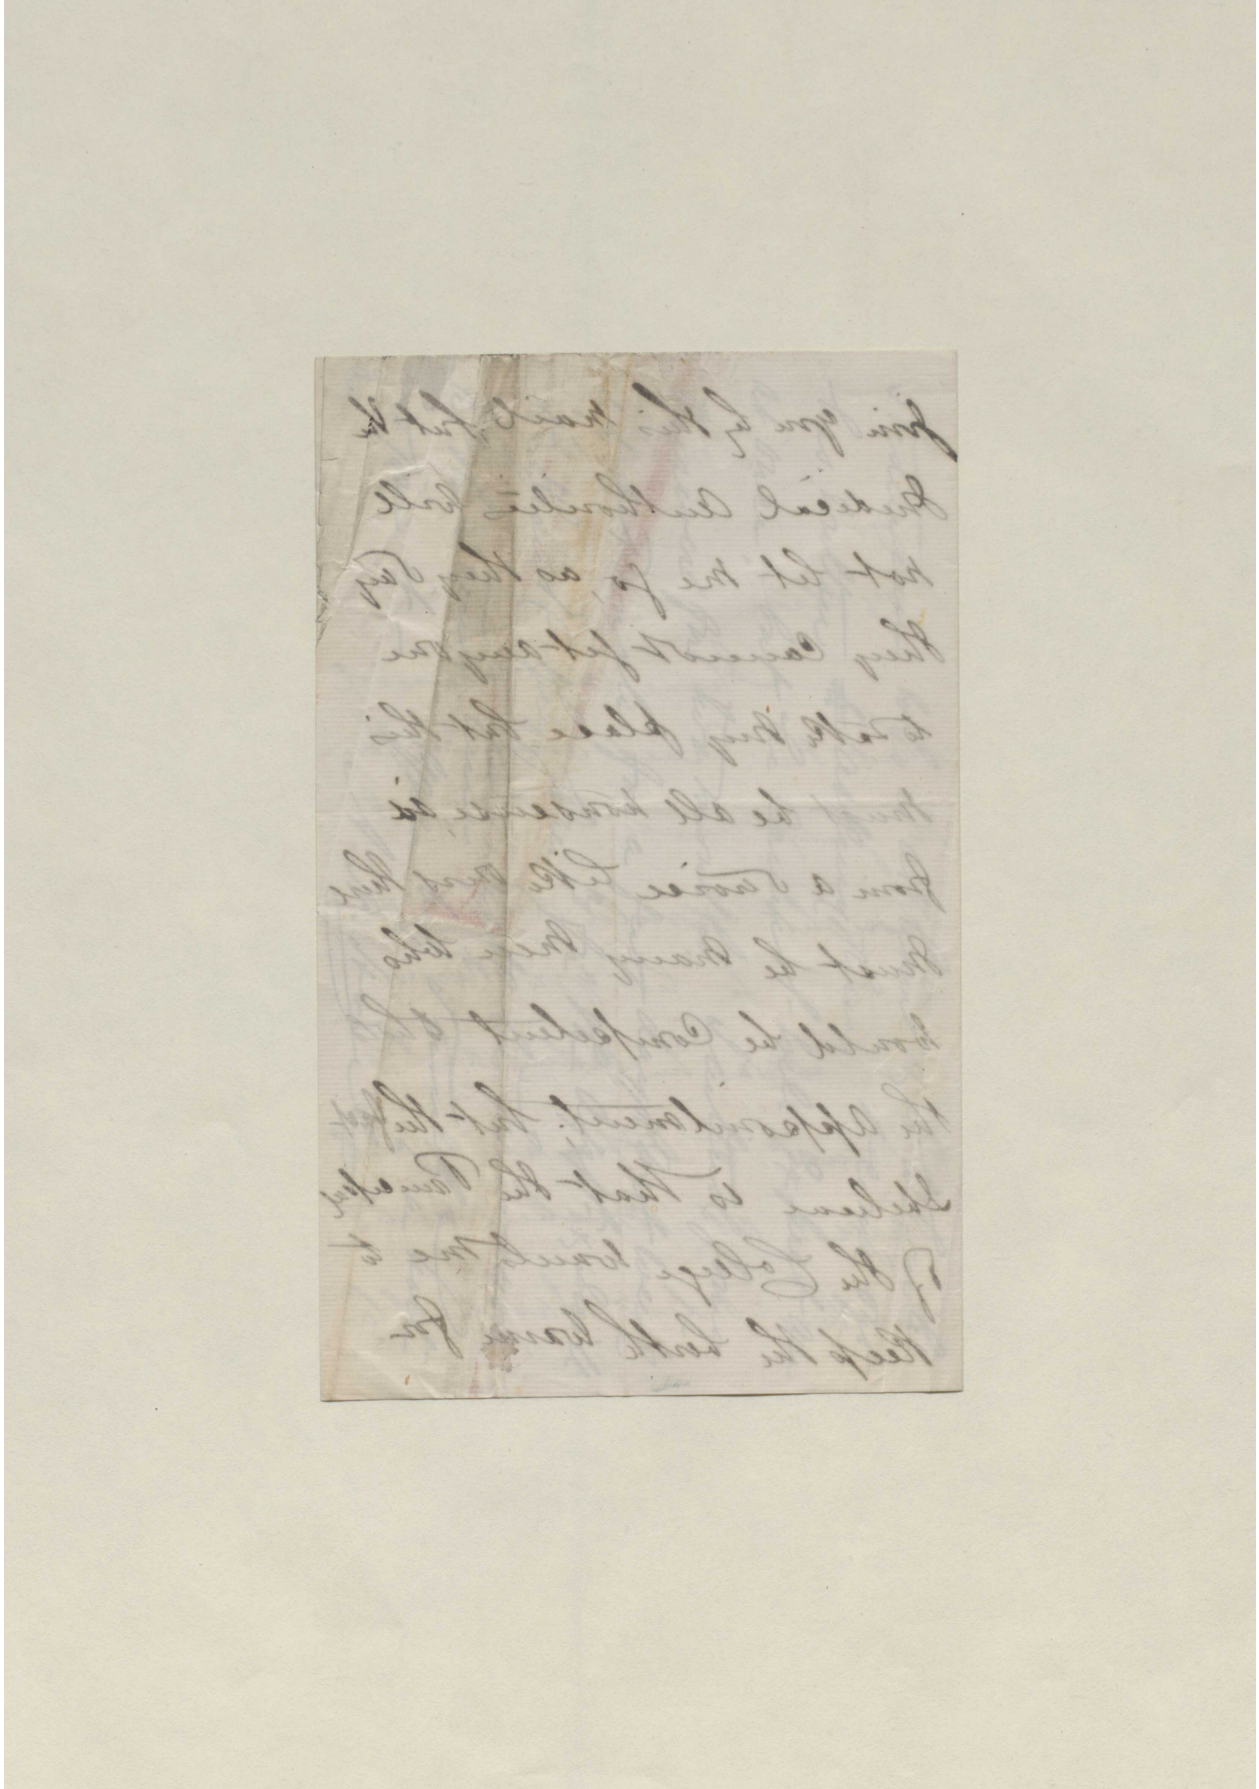 join you by this mail, but the
Medical Authorities will
not let me go, as they say
they cannot get any one
to take my place but this
must be all nonsense, as
from a Service like ours there
must be many men who
would be competent to the
the appointment. but the fact
I believe is that the
of the College wants me to
keep the berth warm for